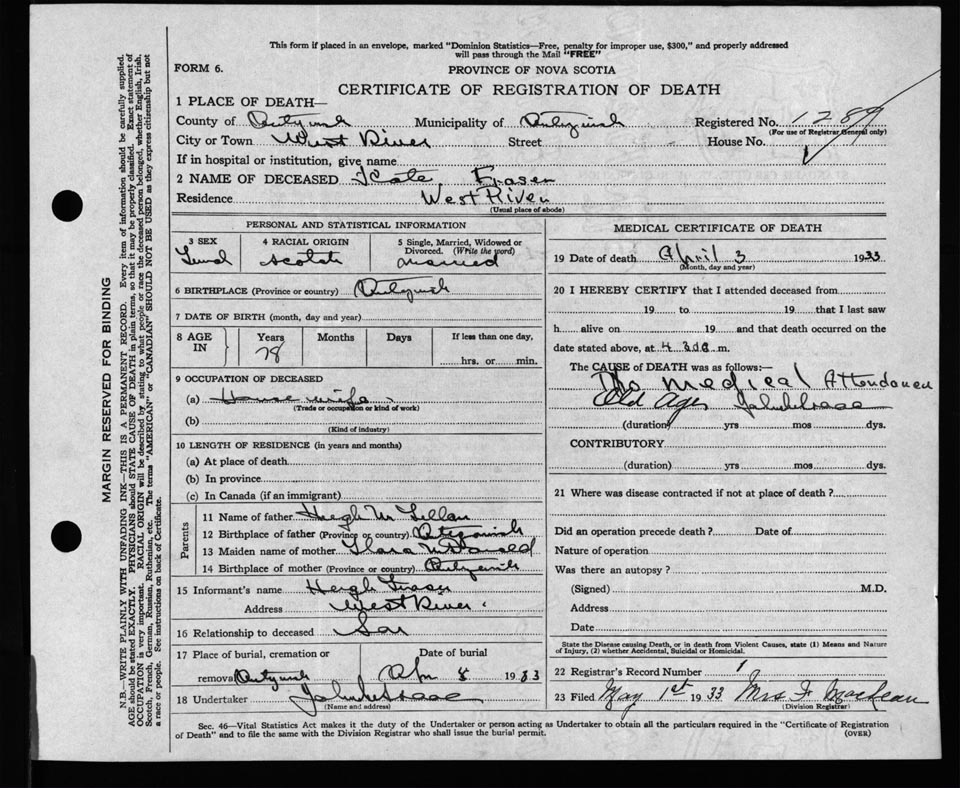 This form if placed in an envelope, marked "Dominion Statistics—Free, penalty for improper use, $300," and properly addressed
will pass through the Mail "FREE"
FORM 6.
PROVINCE OF NOVA SCOTIA
CERTIFICATE OF REGISTRATION OF DEATH
1 PLACE OF DEATH—
County of Municipality of Registered No. 1289
(For use of Registrar General only)
City or Town West River Street House No.
If in hospital or institution, give name
2 NAME OF DECEASED Kate Fraser
Residence West River
(Usual place of abode)
PERSONAL AND STATISTICAL INFORMATION
3 SEX 4 RACIAL ORIGIN 5 Single, Married, Widowed or
Divorced. (Write the word)
Scotch married
6 BIRTHPLACE (Province or country)
7 DATE OF BIRTH (month, day and year)
8 AGE IN Years Months Days If less than one day,
78 hrs. or min.
9 OCCUPATION OF DECEASED
(a) House wife
(Trade or occupation or kind of work)
(b)
(Kind of industry)
10 LENGTH OF RESIDENCE (in years and months)
(a) At place of death
(b) In province
(c) In Canada (if an immigrant)
Parents
11 Name of father Hugh McLellan
12 Birthplace of father (Province or country)
13 Maiden name of mother McDonald
14 Birthplace of mother (Province or country)
15 Informant's name Hugh Fraser
Address West River
16 Relationship to deceased Son
17 Place of burial, cremation or Date of burial
removal Apr 8 1933
18 Undertaker
(Name and address)
MEDICAL CERTIFICATE OF DEATH
19 Date of death April 3 1933
(Month, day and year)
20 I HEREBY CERTIFY that I attended deceased from
19 to 19 that I last saw
h alive on 19 and that death occurred on
date stated above, at 4 30 m.
The CAUSE of DEATH was as follows:—
No Medical Attendance
Old Age
(duration) yrs mos dys.
CONTRIBUTORY
(duration) yrs mos dys.
21 Where was disease contracted if not at place of death?
Did an operation precede death? Date of
Nature of operation
Was there an autopsy?
(Signed) M.D.
Address
Date
State the Disease causing Death, or in death from Violent Causes, state (1) Means and Nature
of Injury, (2) whether Accidental, Suicidal or Homicidal.
22 Registrar's Record Number 1
23 Filed May 1st 1933 Mrs
(Division Registrar)
Sec. 46—Vital Statistics Act makes it the duty of the Undertaker or person acting as Undertaker to obtain all the particulars required in the "Certificate of Registration
of Death" and to file the same with the Division Registrar who shall issue the burial permit.
(OVER)
MARGIN RESERVED FOR BINDING
N.B.—WRITE PLAINLY WITH UNFADING INK—THIS IS A PERMANENT RECORD. Every item of information should be carefully supplied.
AGE should be stated EXACTLY. PHYSICIANS should STATE CAUSE OF DEATH in plain terms, so that it may be properly classified. Exact statement of
OCCUPATION is very important. RACIAL ORIGIN will be described by stating to what people or race the deceased person belonged, whether English, Irish,
Scotch, French, German, Russian, Ruthenian, etc. The terms "AMERICAN" or "CANADIAN" SHOULD NOT BE USED as they express citizenship but not
a race or people. See instructions on back of Certificate.